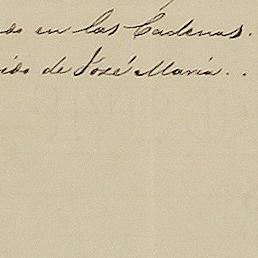 do en las Cadenas.
ido de José María. .